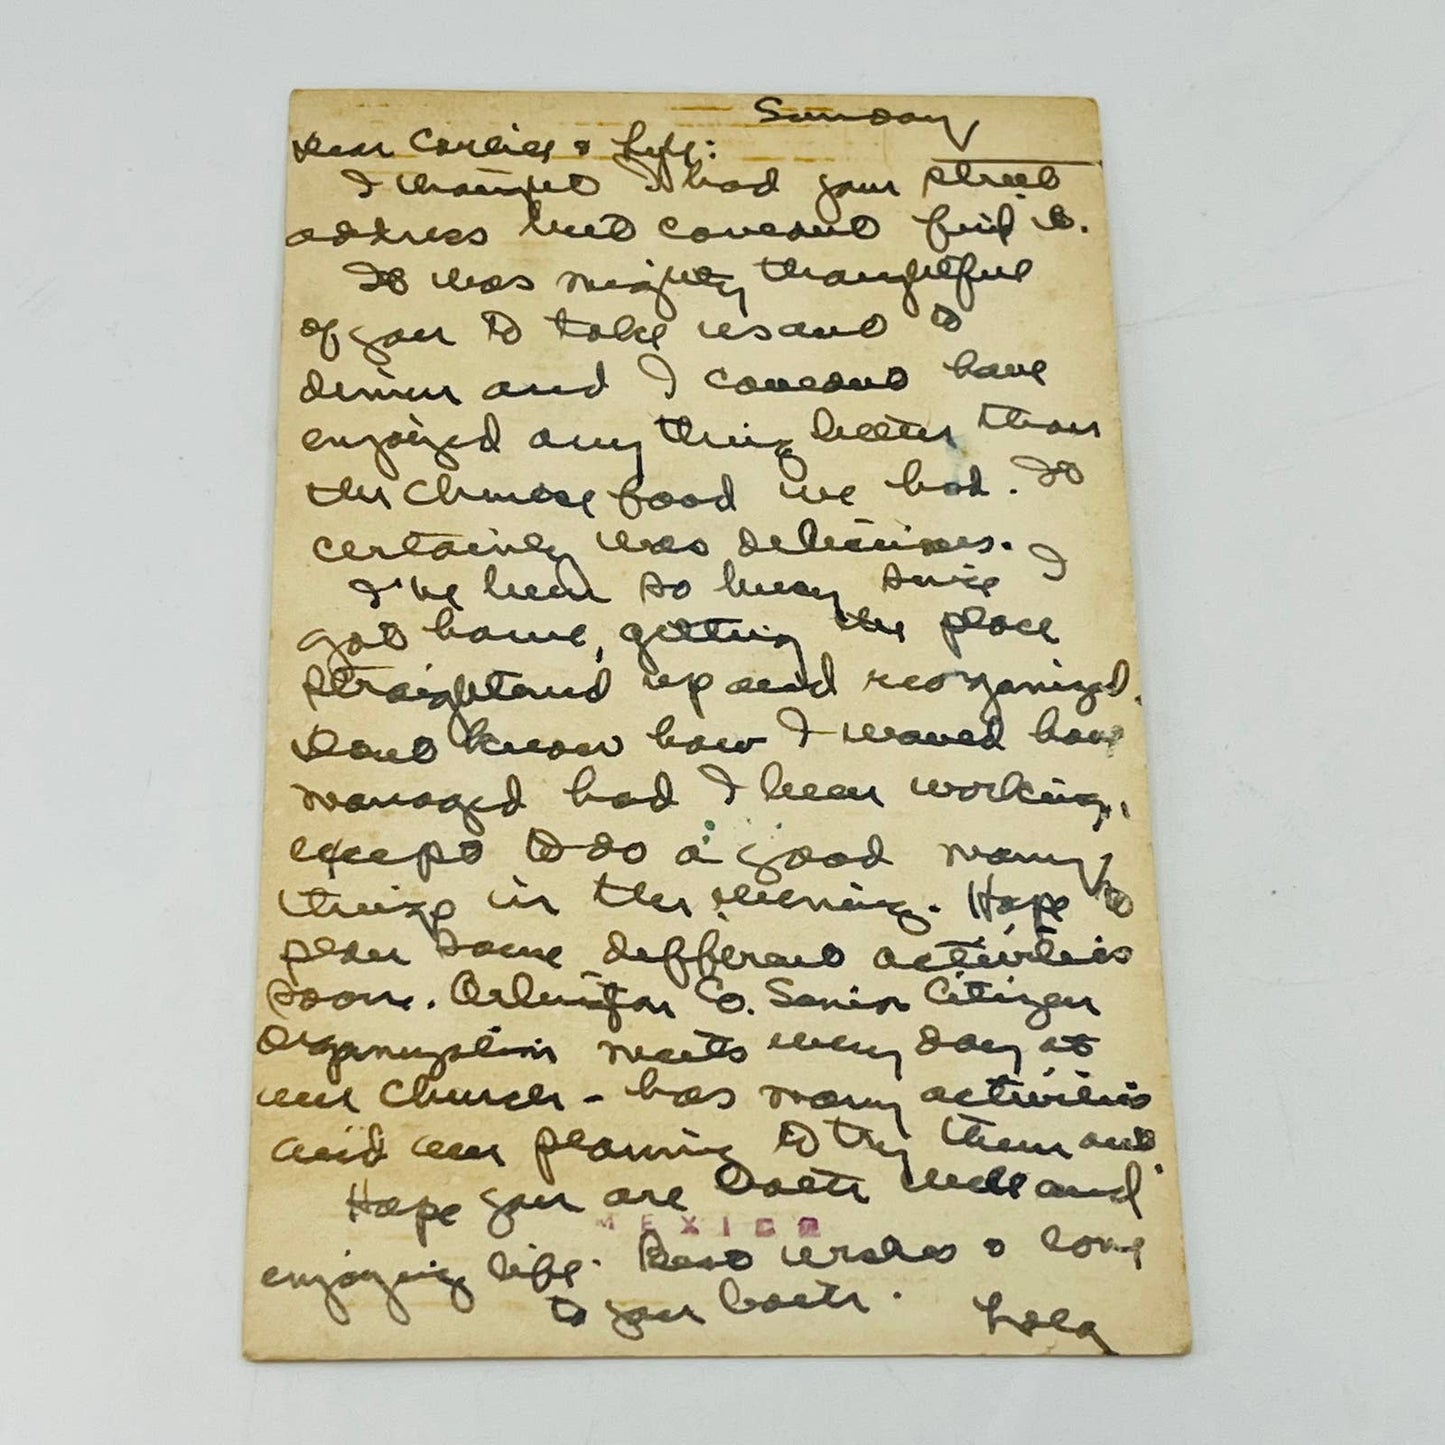 Sunday
Dear Corliss & Lyle:
I thought I had your street
address but couldn't find it.
It was mighty thoughtful
of you to take us out to
dinner and I couldn't have
enjoyed any thing better than
the Chinese food we had. It
certainly was delicious.
I've been so busy since I
got home, getting the place
straightened up and reorganized.
Don't know how I would have
managed had I been working,
except to do a good many
things in the evening. Hope to
plan some different activities
soon. Arlington Co. Senior Citizen
Organization meets every day at
our Church - has many activities
and am planning to try them out.
Hope you are both well and
MEXICO
enjoying life. Best wishes & love
to you both.
Lola